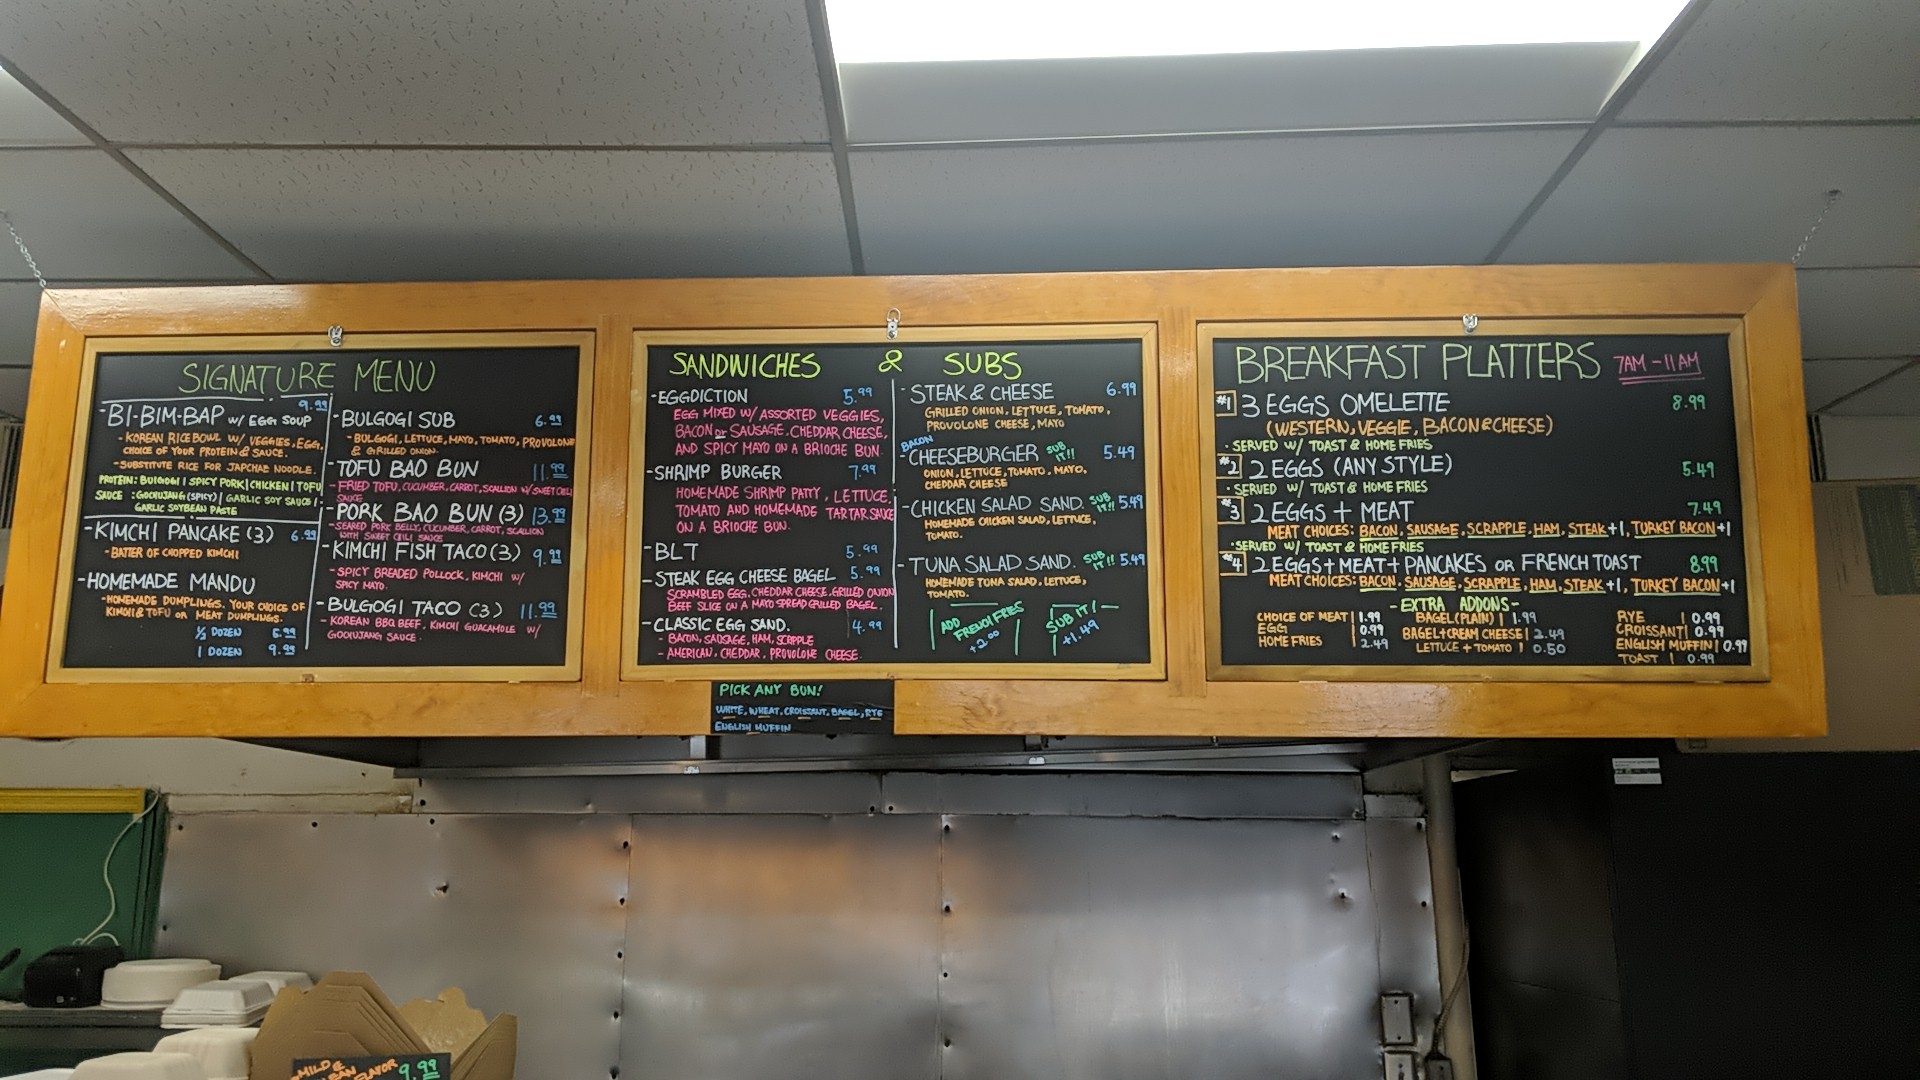 SIGNATURE MENU
-BI-BIM-BAP W/ EGG SOUP 9.99
- KOREAN RICE BOWL W/ VEGGIES, EGG,
CHOICE OF YOUR PROTEIN & SAUCE.
-SUBSTITUTE RICE FOR JAPCHAE NOODLE.
PROTEIN: BULGOGI | SPICY PORK | CHICKEN | TOFU
SAUCE : GOCHUJANG (SPICY) | GARLIC SOY SAUCE |
GARLIC SOYBEAN PASTE
-KIMCHI PANCAKE (3) 6.99
- BATTER OF CHOPPED KIMCHI
-HOMEMADE MANDU
-HOMEMADE DUMPLINGS. YOUR CHOICE OF
KIMCHI & TOFU OR MEAT DUMPLINGS.
1/2 DOZEN 5.99
1 DOZEN 9.99
-BULGOGI SUB 6.99
-BULGOGI, LETTUCE, MAYO, TOMATO, PROVOLONE
& GRILLED ONION.
-TOFU BAO BUN 11.99
-FRIED TOFU, CUCUMBER, CARROT, SCALLION W/ SWEET CHILI
SAUCE
-PORK BAO BUN (3) 13.99
-SEARED PORK BELLY, CUCUMBER, CARROT, SCALLION
WITH SWEET CHILI SAUCE
-KIMCHI FISH TACO (3) 9.99
- SPICY BREADED POLLOCK, KIMCHI W/
SPICY MAYO.
-BULGOGI TACO (3) 11.99
- KOREAN BBQ BEEF, KIMCHI GUACAMOLE W/
GOCHUJANG SAUCE.
SANDWICHES & SUBS
-EGGDICTION 5.99
EGG MIXED W/ ASSORTED VEGGIES,
BACON or SAUSAGE, CHEDDAR CHEESE,
AND SPICY MAYO ON A BRIOCHE BUN.
-SHRIMP BURGER 7.99
HOMEMADE SHRIMP PATTY, LETTUCE,
TOMATO AND HOMEMADE TARTAR SAUCE
ON A BRIOCHE BUN.
-BLT 5.99
-STEAK EGG CHEESE BAGEL 5.99
SCRAMBLED EGG, CHEDDAR CHEESE, GRILLED ONION
BEEF SLICE ON A MAYO SPREAD GRILLED BAGEL.
-CLASSIC EGG SAND. 4.99
- BACON, SAUSAGE, HAM, SCRAPPLE
- AMERICAN, CHEDDAR, PROVOLONE CHEESE.
-STEAK & CHEESE 6.99
GRILLED ONION, LETTUCE, TOMATO,
PROVOLONE CHEESE, MAYO
BACON
-CHEESEBURGER SUB IT!! 5.49
ONION, LETTUCE, TOMATO, MAYO,
CHEDDAR CHEESE
-CHICKEN SALAD SAND. SUB IT!! 5.49
HOMEMADE CHICKEN SALAD, LETTUCE,
TOMATO.
-TUNA SALAD SAND. SUB IT!! 5.49
HOMEMADE TUNA SALAD, LETTUCE,
TOMATO.
ADD FRENCH FRIES +2.00
SUB IT! +1.49
PICK ANY BUN!
WHITE, WHEAT, CROISSANT, BAGEL, RYE
ENGLISH MUFFIN
BREAKFAST PLATTERS 7AM-11AM
#1 3 EGGS OMELETTE 8.99
(WESTERN, VEGGIE, BACON & CHEESE)
• SERVED W/ TOAST & HOME FRIES
#2 2 EGGS (ANY STYLE) 5.49
• SERVED W/ TOAST & HOME FRIES
#3 2 EGGS + MEAT 7.49
MEAT CHOICES: BACON, SAUSAGE, SCRAPPLE, HAM, STEAK+1, TURKEY BACON+1
• SERVED W/ TOAST & HOME FRIES
#4 2 EGGS + MEAT + PANCAKES OR FRENCH TOAST 8.99
MEAT CHOICES: BACON, SAUSAGE, SCRAPPLE, HAM, STEAK+1, TURKEY BACON+1
-EXTRA ADDONS-
CHOICE OF MEAT | 1.99
EGG | 0.99
HOME FRIES | 2.49
BAGEL (PLAIN) | 1.99
BAGEL+CREAM CHEESE | 2.49
LETTUCE + TOMATO | 0.50
RYE | 0.99
CROISSANT | 0.99
ENGLISH MUFFIN | 0.99
TOAST | 0.99
MILD &
FLAVOR 9.99